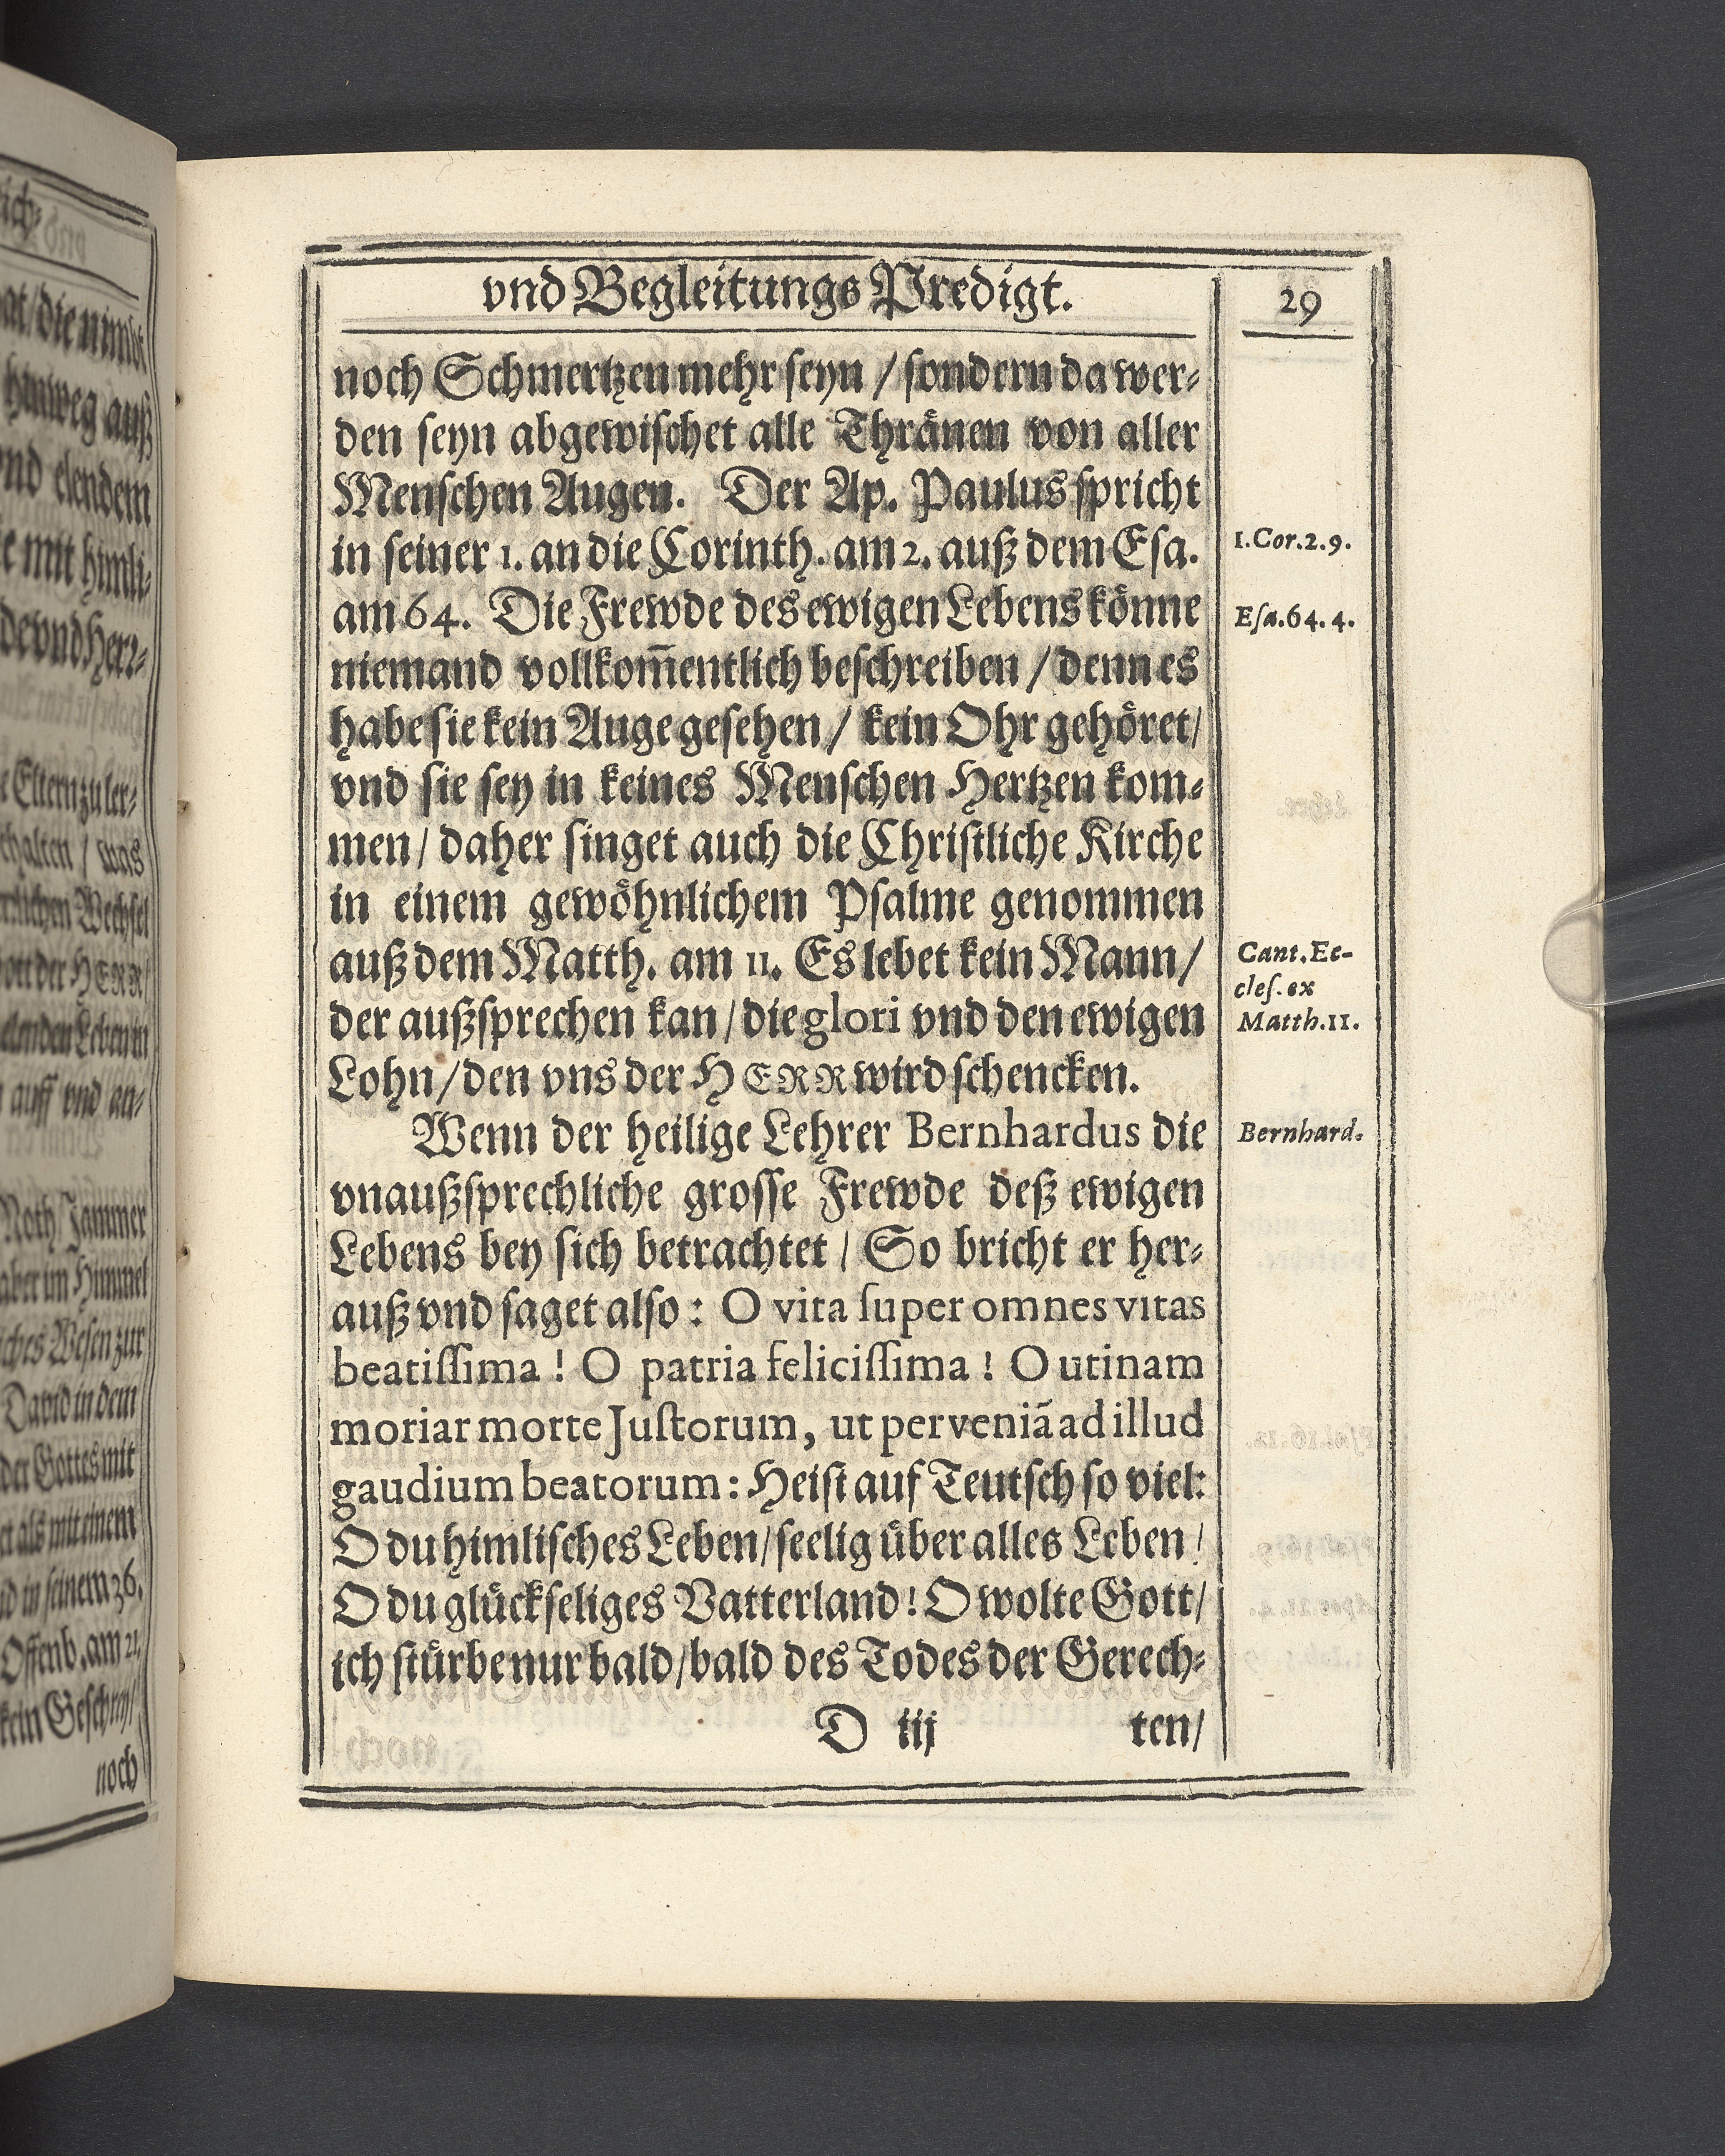 vnd Begleitungs Predigt.
29
noch Schmertzen mehr seyn / sondern da wer-
den seyn abgewischet alle Thränen von aller
Menschen Augen. Der Ap. Paulus spricht
in seiner 1. an die Corinth. am 2. auß dem Esa.
am 64. Die Frewde des ewigen Lebens könne
niemand vollkom̃entlich beschreiben / denn es
habe sie kein Auge gesehen / kein Ohr gehöret/
vnd sie sey in keines Menschen Hertzen kom-
men / daher singet auch die Christliche Kirche
in einem gewöhnlichem Psalme genommen
auß dem Matth. am 11. Es lebet kein Mann/
der außsprechen kan / die glori vnd den ewigen
Lohn / den vns der HERR wird schencken.
Wenn der heilige Lehrer Bernhardus die
vnaußsprechliche grosse Frewde deß ewigen
Lebens bey sich betrachtet / So bricht er her-
auß vnd saget also: O vita ſuper omnes vitas
beatiſſima ! O patria feliciſſima ! O utinam
moriar morte Juſtorum, ut perveniã ad illud
gaudium beatorum: Heist auf Teutsch so viel:
O du himlisches Leben / seelig über alles Leben /
O du glückseliges Vatterland ! O wolte Gott/
ich stürbe nur bald / bald des Todes der Gerech-
D iij ten/
1. Cor. 2. 9.
Eſa. 64. 4.
Cant. Ec-
cleſ. ex
Matth. 11.
Bernhard.